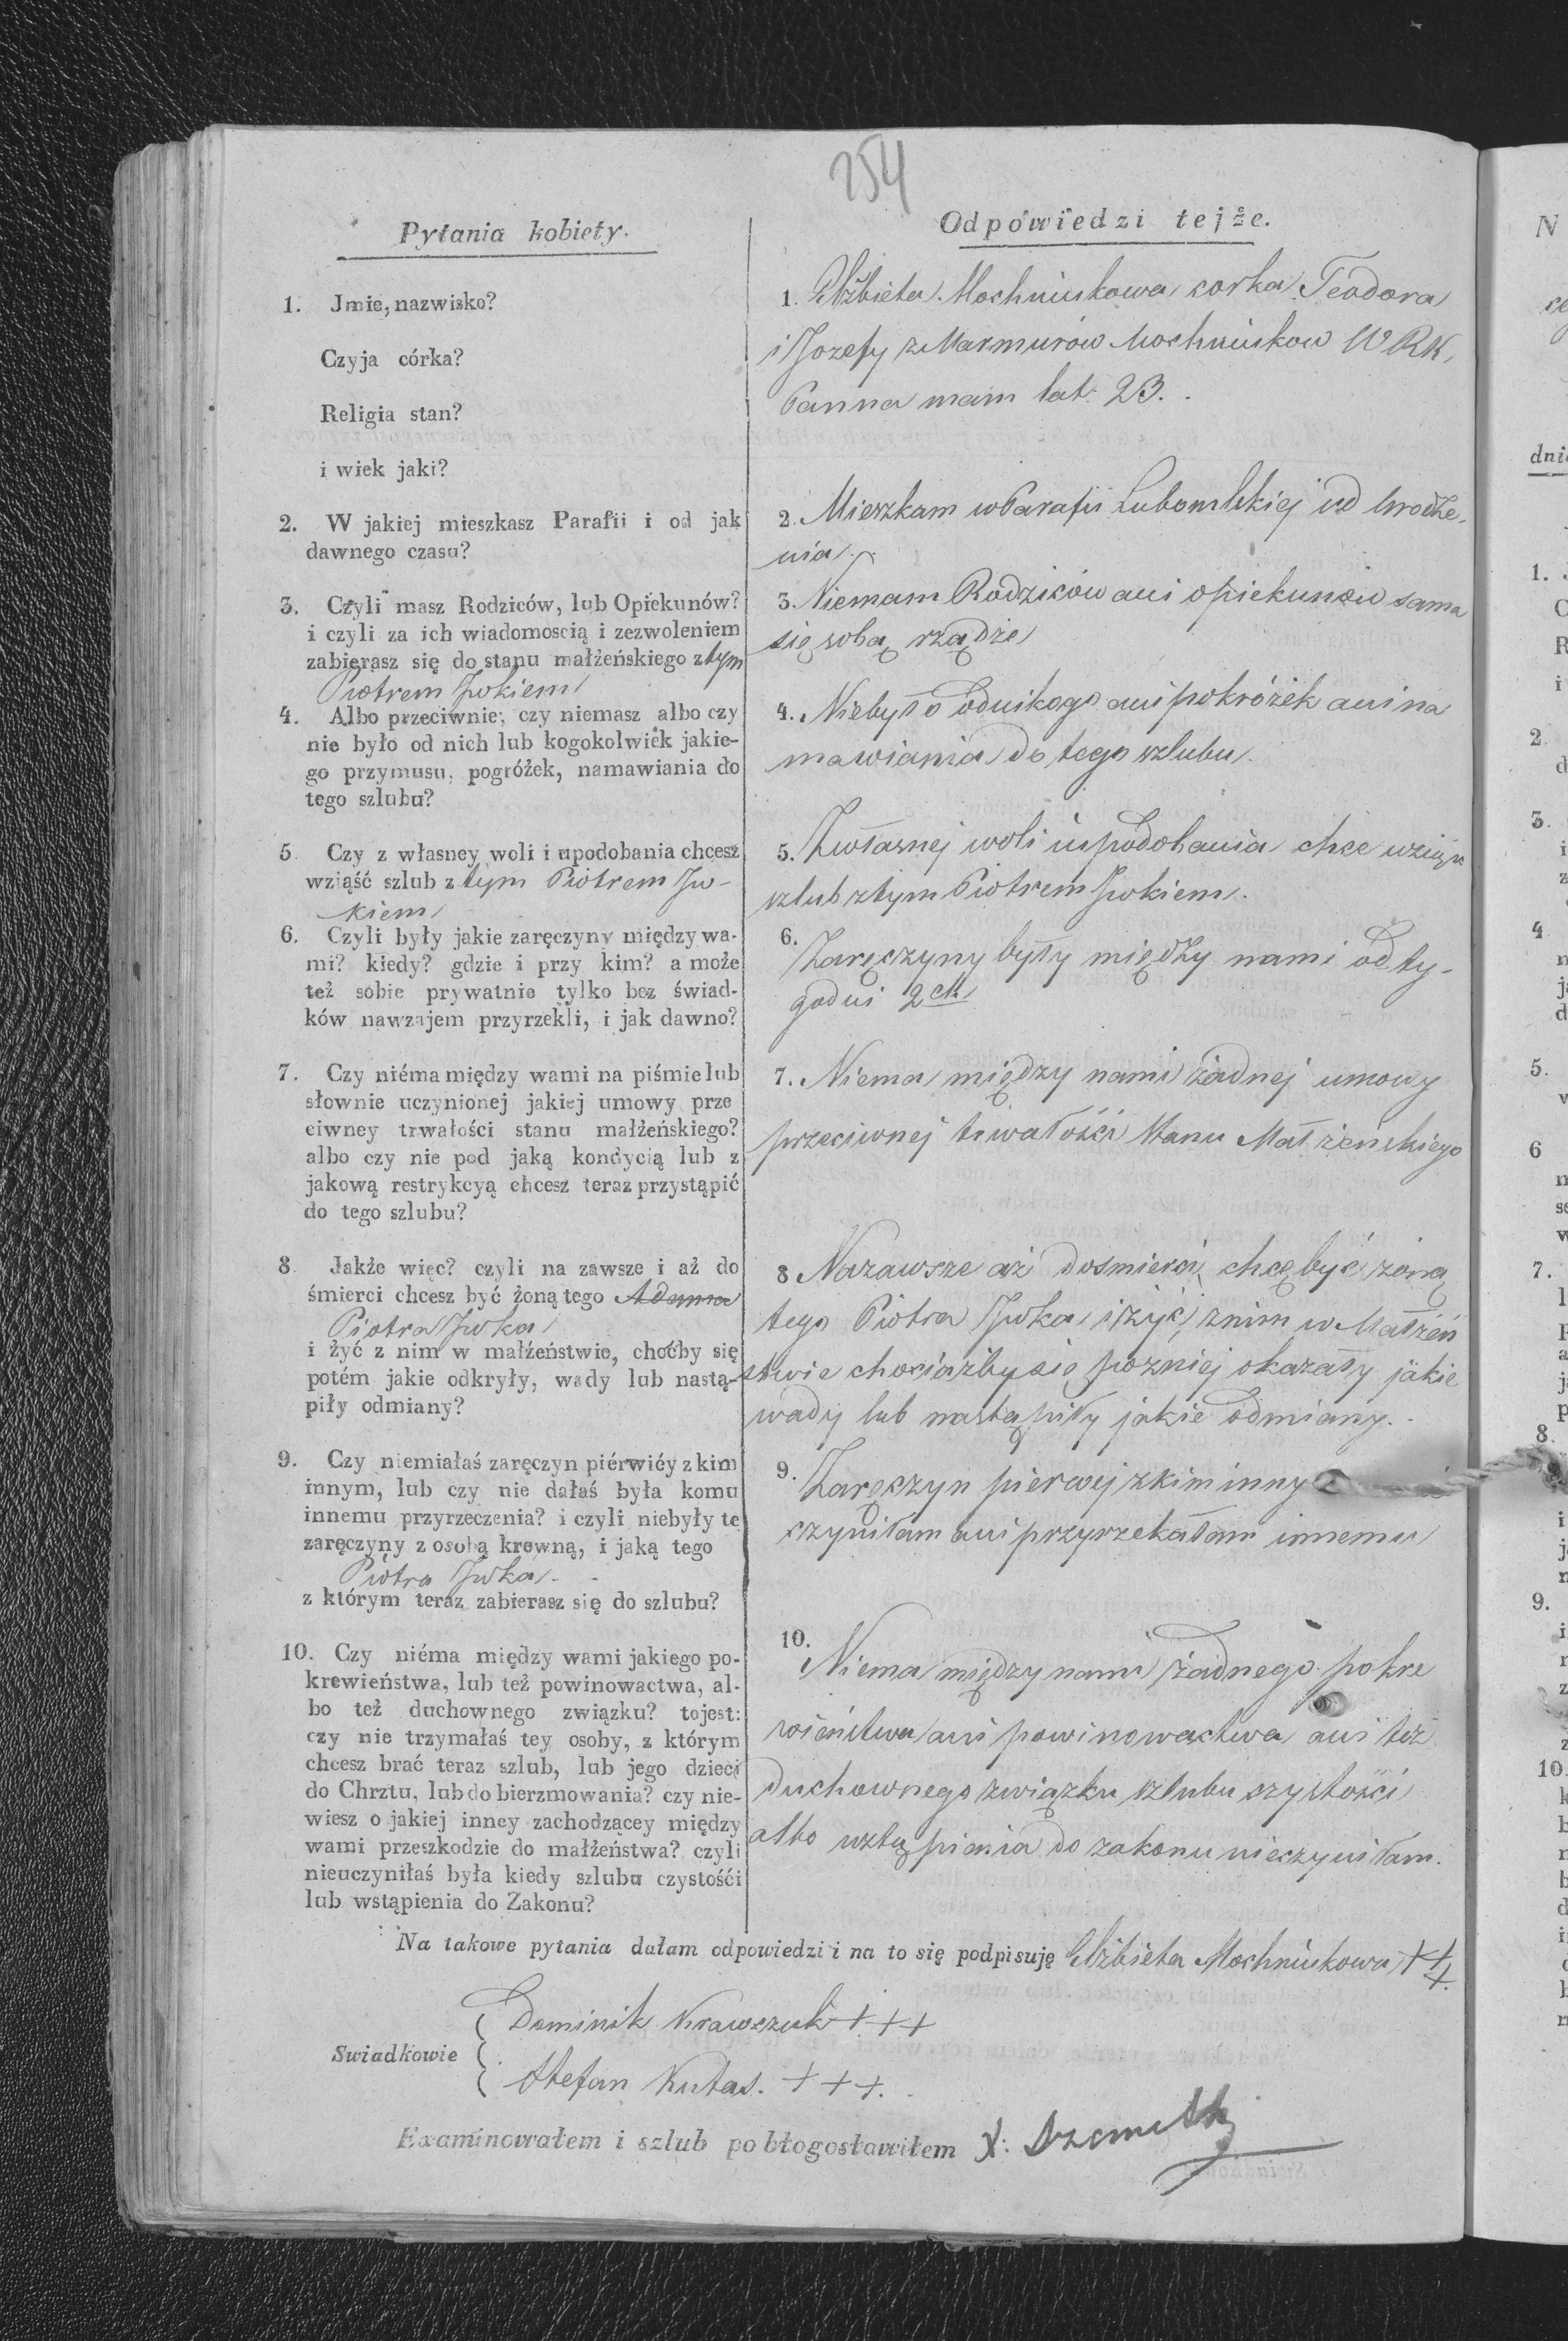 254
Pytania kobiety.
1. Jmie, nazwisko?
Czyja córka?
Religia stan?
i wiek jaki?
2. W jakiej mieszkasz Parafii i od jak
dawnego czasu?
3. Czyli masz Rodziców, lub Opiekunów?
i czyli za ich wiadomoscią i zezwoleniem
zabierasz się do stanu małżeńskiego z tym
Piotrem Jwkiem
4. Albo przeciwnie, czy niemasz albo czy
nie było od nich lub kogokolwiek jakie-
go przymusu, pogróżek, namawiania do
tego szlubu?
5 Czy z własney woli i upodobania chcesz
wziąść szlub z tym Piotrem Jw-
kiem
6. Czyli były jakie zaręczyny między wa-
mi? kiedy? gdzie i przy kim? a może
też sobie prywatnie tylko bez świad-
ków nawzajem przyrzekli, i jak dawno?
7. Czy niéma między wami na piśmie lub
słownie uczynionej jakiej umowy prze
ciwney trwałości stanu małżeńskiego?
albo czy nie pod jaką kondycią lub z
jakową restrykcyą chcesz teraz przystąpić
do tego szlubu?
8. Jakże więc? czyli na zawsze i aż do
śmierci chcesz być żoną tego Adama
Piotra Jwka
i żyć z nim w małżeństwie, choćby się
potém jakie odkryły, wady lub nastą-
piły odmiany?
9. Czy niemiałaś zaręczyn piérwiéy z kim
innym, lub czy nie dałaś była komu
innemu przyrzeczenia? i czyli niebyły te
zaręczyny z osobą krewną, i jaką tego
Piotra Jwka.
z którym teraz zabierasz się do szlubu?
10. Czy niéma między wami jakiego po-
krewieństwa, lub też powinowactwa, al-
bo też duchownego związku? tojest:
czy nie trzymałaś tey osoby, z którym
chcesz brać teraz szlub, lub jego dzieci
do Chrztu, lub do bierzmowania? czy nie-
wiesz o jakiej inney zachodzącey między
wami przeszkodzie do małżeństwa? czyli
nieuczyniłaś była kiedy szlubu czystośći
lub wstąpienia do Zakonu?
Odpowiedzi tejże.
1. Elżbieta Mochniukowa corka Teodora
i Jozefy z Marmurów Mochniukow W RK,
Panna mam lat 23.
2. Mieszkam w Parafii Lubomlskiej od Urodze-
nia.
3. Niemam Rodziców ani opiekunów sama
się sobą rządze
4. Niebyło od nikogo ani pokróżek ani na
mawiania do tego szlubu.
5. Zwłasnej woli i upodobania chce wziąść
szlub z tym Piotrem Jwkiem.
6. Zaręczyny były między nami od ty-
godni 2ch
7. Niema między nami żadnej umowy
przeciwnej trwałości Stanu Małżeńskiego
8 Nazawsze aż dosmierci chcę być żoną
tego Piotra Jwka i żyć z nim w Małżeń
stwie chociażby się pozniej okazały jakie
wady lub nastąpiły jakie odmiany.
9. Zaręczyn pierwej z kim inny
czyniłam ani przyrzekałam innemu
10. Niema między nami żadnego pokre
wieństwa ani powinowactwa ani też
duchownego związku szlubu czystości
albo wstąpienia do zakonu nieczyniłam.
Na takowe pytania dałam odpowiedzi i na to się podpisuję Elżbieta Mochniukowa +++.
Swiadkowie
Dominik Krawczuk +++
Stefan Kutas. +++.
Examinowałem i szlub pobłogosławiłem X.